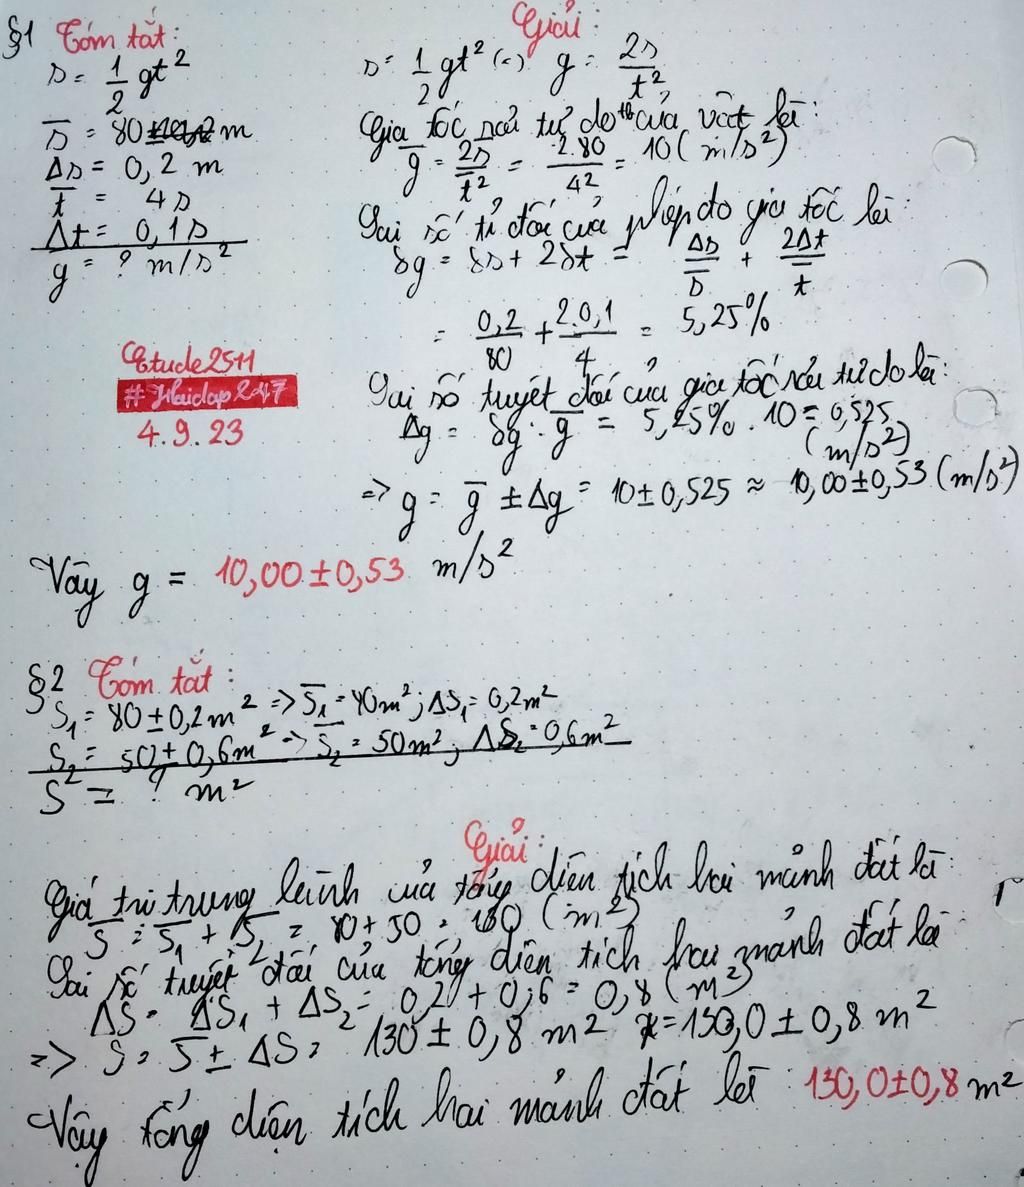 §1 Tóm tắt:
s = 1/2 gt²
s̄ = 80 m
Δs = 0,2 m
t̄ = 4s
Δt = 0,1s
g = ? m/s²
Giải:
s = 1/2 gt² (=) g = 2s/t²
Gia tốc rơi tự do của vật là:
ḡ = 2s̄/t̄² = 2.80/4² = 10 (m/s²)
Sai số tỉ đối của phép đo gia tốc là:
δg = δs + 2δt = Δs/s̄ + 2Δt/t̄
= 0,2/80 + 2.0,1/4 = 5,25%
Sai số tuyệt đối của gia tốc rơi tự do là:
Δg = δg . ḡ = 5,25% . 10 = 0,525
(m/s²)
=> g = ḡ ± Δg = 10 ± 0,525 ≈ 10,00 ± 0,53 (m/s²)
Etude2511
#Hoidap247
4.9.23
Vậy g = 10,00 ± 0,53 m/s²
§2 Tóm tắt:
S₁ = 80 ± 0,2m² => S̄₁ = 80m²; ΔS₁ = 0,2m²
S₂ = 50 ± 0,6m² => S̄₂ = 50m²; ΔS₂ = 0,6m²
S = ? m²
Giải:
Giá trị trung bình của tổng diện tích hai mảnh đất là:
S̄ = S̄₁ + S̄₂ = 80 + 50 = 130 (m²)
Sai số tuyệt đối của tổng diện tích hai mảnh đất là
ΔS = ΔS₁ + ΔS₂ = 0,2 + 0,6 = 0,8 (m²)
=> S = S̄ ± ΔS = 130 ± 0,8 m² = 130,0 ± 0,8 m²
Vậy tổng diện tích hai mảnh đất là 130,0 ± 0,8 m²